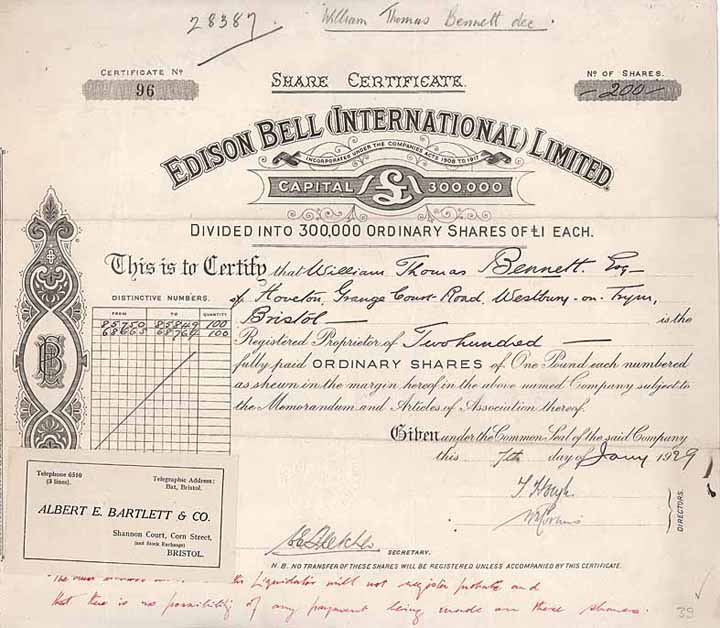 28387.
William Thomas Bennett dec.
CERTIFICATE No
96
SHARE CERTIFICATE.
No OF SHARES.
200
EDISON BELL (INTERNATIONAL) LIMITED.
INCORPORATED UNDER THE COMPANIES ACTS 1908 TO 1917
CAPITAL £ 300,000
DIVIDED INTO 300,000 ORDINARY SHARES OF £1 EACH.
This is to Certify that William Thomas Bennett. Esq
of Hoveton, Grange Court Road, Westbury-on-Trym,
Bristol is the
Registered Proprietor of Two hundred
fully paid ORDINARY SHARES of One Pound each numbered
as shewn in the margin hereof in the above named Company subject to
the Memorandum and Articles of Association thereof.
Given under the Common Seal of the said Company
this 7th day of Jany 1929
DISTINCTIVE NUMBERS.
FROM TO QUANTITY
85750 85849 100
68665 68764 100
EB
DIRECTORS.
SECRETARY.
N.B. NO TRANSFER OF THESE SHARES WILL BE REGISTERED UNLESS ACCOMPANIED BY THIS CERTIFICATE.
Telephone 6510
(3 lines).
Telegraphic Address:
Bat, Bristol.
ALBERT E. BARTLETT & CO.
Shannon Court, Corn Street,
(and Stock Exchange)
BRISTOL.
Liquidator will not register probate and
that there is no possibility of any payment being made on these shares.
39